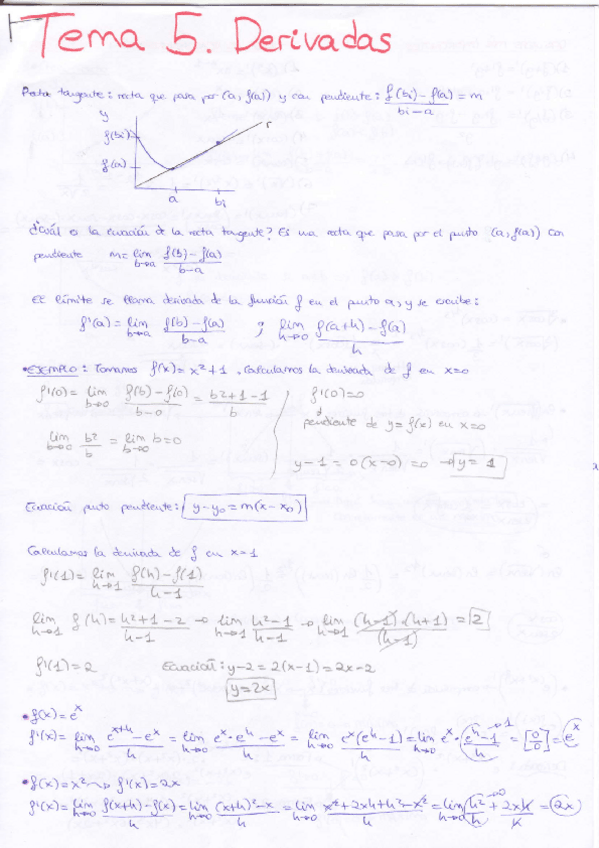 Tema 5. Derivadas
Recta tangente: recta que pasa por (a, f(a)) y con pendiente: f(bi)-f(a)/bi-a = m
y
f(bi)
r
f(a)
a
bi
¿Cuál es la ecuación de la recta tangente? Es una recta que pasa por el punto (a, f(a)) con
pendiente m= lim b→a f(b)-f(a)/b-a
El límite se llama derivada de la función f en el punto a, y se escribe:
f'(a) = lim b→a f(b)-f(a)/b-a ; lim h→0 f(a+h)-f(a)/h
• EJEMPLO: Tomamos f(x)=x²+1. Calculamos la derivada de f en x=0
f'(0)= lim b→0 f(b)-f(0)/b-0 = b²+1-1/b
f'(0)=0
pendiente de y=f(x) en x=0
lim b→0 b²/b = lim b→0 b=0
y-1 = 0(x-0) =0 → y=1
Ecuación punto pendiente: y-y₀=m(x-x₀)
Calculamos la derivada de f en x=1
f'(1)= lim h→1 f(h)-f(1)/h-1
lim h→1 f(h)= h²+1-2/h-1 → lim h→1 h²-1/h-1 → lim h→1 (h-1)·(h+1)/(h-1) = 2
f'(1)=2 Ecuación: y-2=2(x-1)=2x-2
y=2x
• f(x)=eˣ
f'(x)= lim h→0 eˣ⁺ʰ-eˣ/h = lim h→0 eˣ·eʰ-eˣ/h = lim h→0 eˣ(eʰ-1)/h = lim h→0 eˣ·eʰ-1/h →1 = [0/0] = eˣ
• f(x)=x² → f'(x)=2x
f'(x)= lim h→0 f(x+h)-f(x)/h = lim h→0 (x+h)²-x/h = lim h→0 x²+2xh+h²-x²/h = lim h→0 h²/h →0 + 2xh/h = 2x